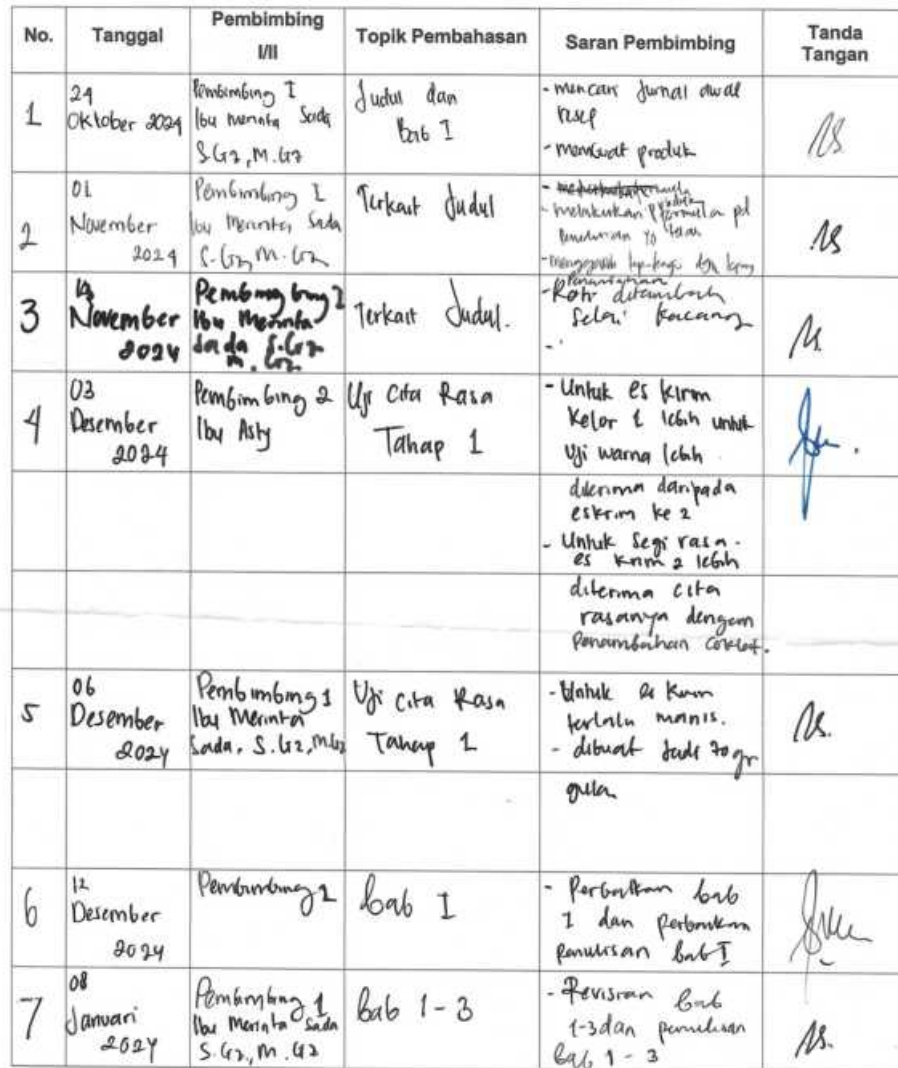 No. Tanggal Pembimbing I/II Topik Pembahasan Saran Pembimbing Tanda Tangan
1
24
Oktober 2024
Pembimbing I
Ibu Merinta Sada
S.Gz, M.Gz
Judul dan
Bab I
- mencari Jurnal awal
resep
- membuat produk
2
01
November
2024
Pembimbing I
Ibu Merinta Sada
S.Gz, M.Gz
Terkait Judul
- melakukan formula pd
3
November
2024
Ibu Merinta
Sada S.Gz
M.Gz
Terkait Judul.
- Roti ditambah
Selai Kacang
-
4
03
Desember
2024
Pembimbing 2
Ibu Asty
Uji Cita Rasa
Tahap 1
- Untuk es krim
Kelor 1 lebih untuk
Uji warna lebih
diterima daripada
eskrim ke 2
- Untuk Segi rasa.
es krim 2 lebih
diterima cita
rasanya dengan
Penambahan Coklat.
5
06
Desember
2024
Pembimbing 1
Ibu Merinta
Sada, S.Gz, M.Gz
Uji Cita Rasa
Tahap 1
- Untuk es krim
terlalu manis.
- dibuat Jadi 70 gr
gula
6
12
Desember
2024
Pembimbing 2
Bab I
- Perbaikan bab
I dan Perbaikan
Penulisan Bab I
7
08
Januari
2024
Pembimbing 1
Ibu Merinta Sada
S.Gz, M.Gz
Bab 1-3
- Revisian Bab
1-3 dan penulisan
Bab 1-3